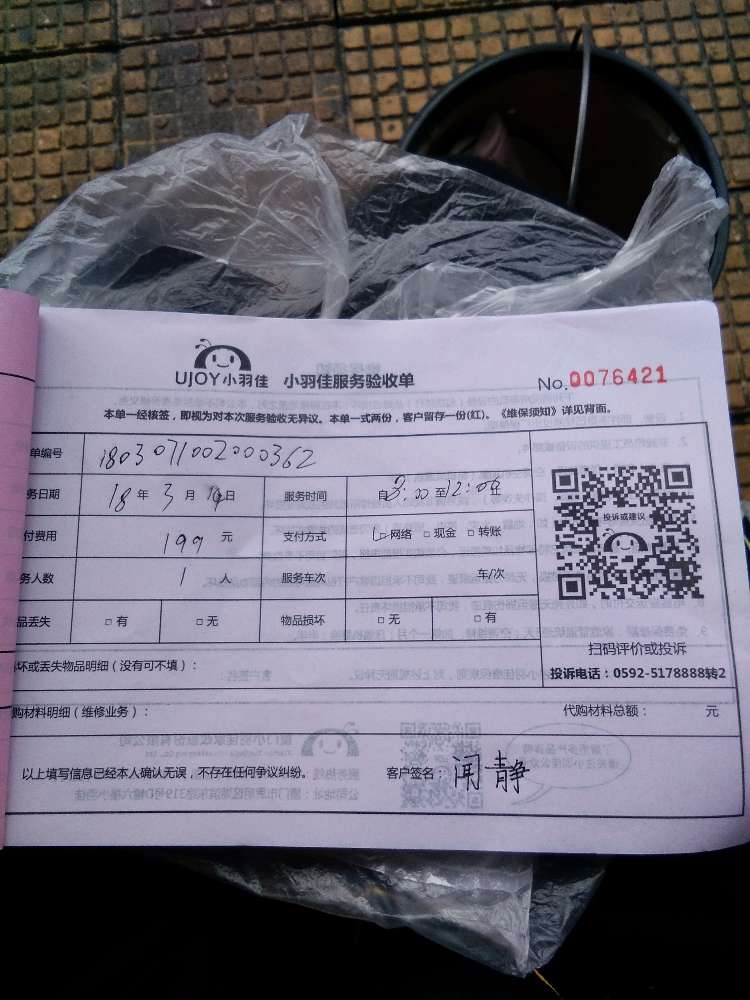 UJOY小羽佳 小羽佳服务验收单 No.0076421
本单一经核签，即视为对本次服务验收无异议。本单一式两份，客户留存一份(红)。《维保须知》详见背面。
单编号 1803071002000362
务日期 18年3月 日 服务时间 自 :00至12:00止
投诉或建议
付费用 199 元 支付方式 □网络 □现金 □转账
务人数 1 人 服务车次 车/次
品丢失 □有 □无 物品损坏 □无 □有
扫码评价或投诉
坏或丢失物品明细（没有可不填）：
投诉电话：0592-5178888转2
购材料明细（维修业务）： 代购材料总额： 元
以上填写信息已经本人确认无误，不存在任何争议纠纷。 客户签名：闻静